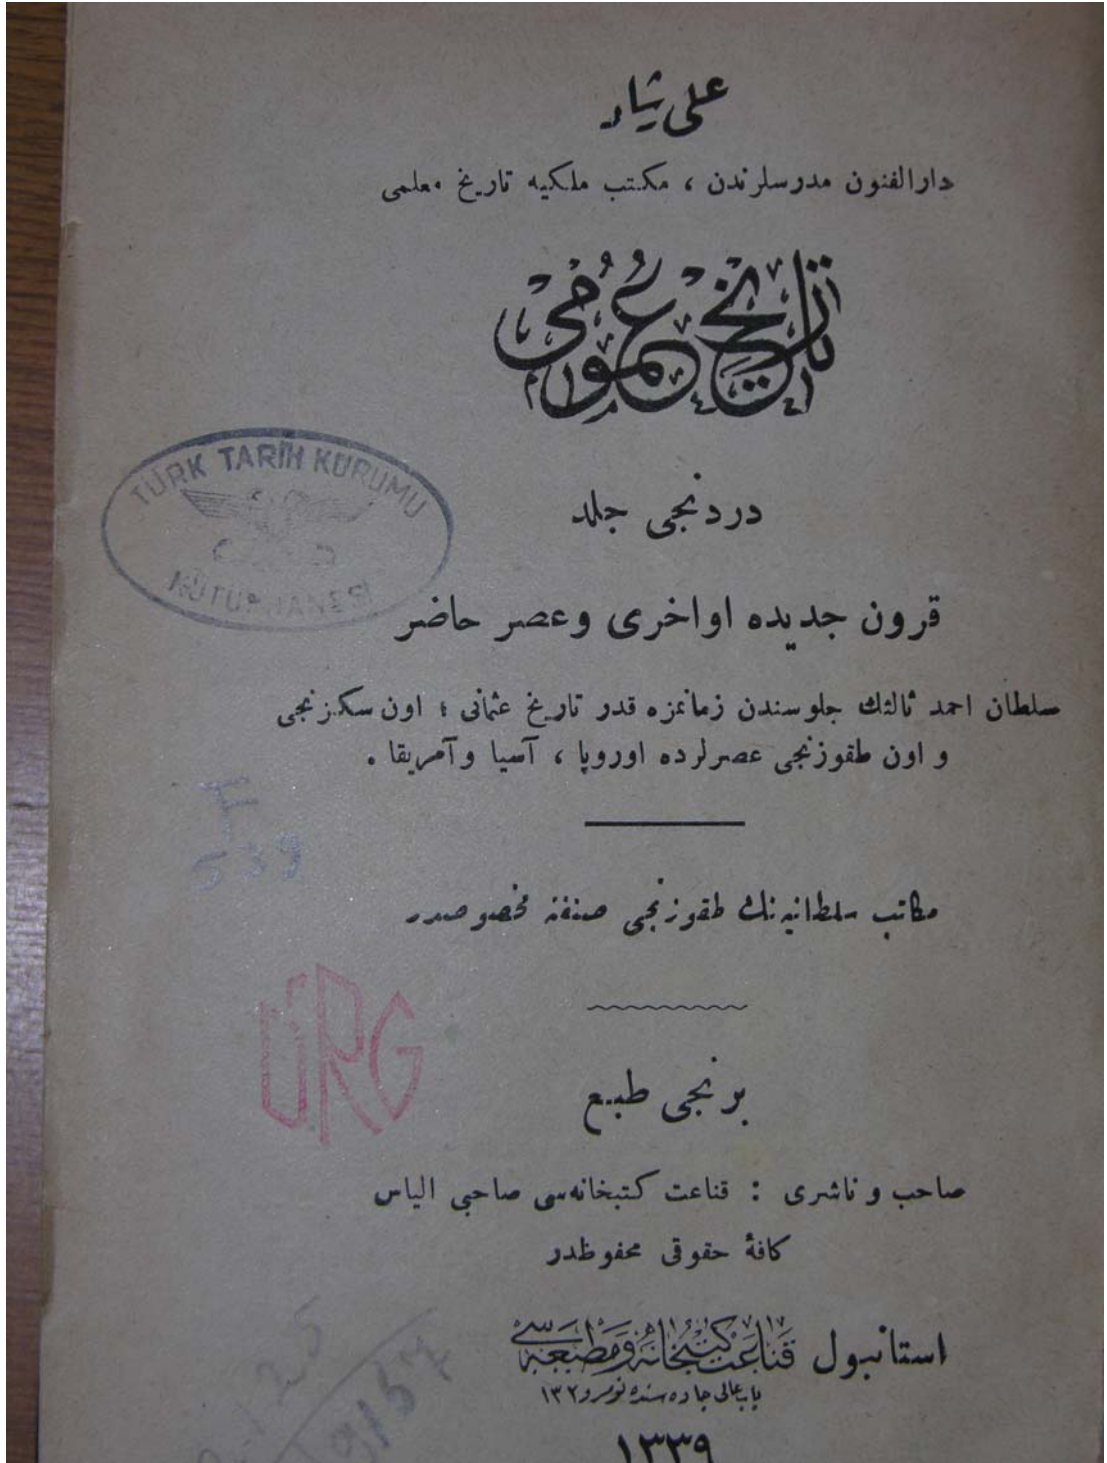 علی رشاد
دارالفنون مدرسلرندن ، مكتب ملكیه تاریخ معلمی
تاریخ عمومی
TÜRK TARİH KURUMU
KÜTÜPHANESİ
دردنجی جلد
قرون جدیده اواخری وعصر حاضر
سلطان احمد ثالثك جلوسندن زمانمزه قدر تاریخ عثمانی ؛ اون سكزنجی
و اون طقوزنجی عصرلرده اوروپا ، آسیا وآمریقا .
F
539
مكاتب سلطانیه نك طقوزنجی صنفنه مخصوصدر
ÜRG
برنجی طبع
صاحب و ناشری : قناعت كتبخانه‌سی صاحبی الیاس
كافهٔ حقوقی محفوظدر
استانبول قناعت كتبخانه و مطبعه‌سی
باب عالی جاده سنده نومرو ۱۳۲
۱۳۳۹